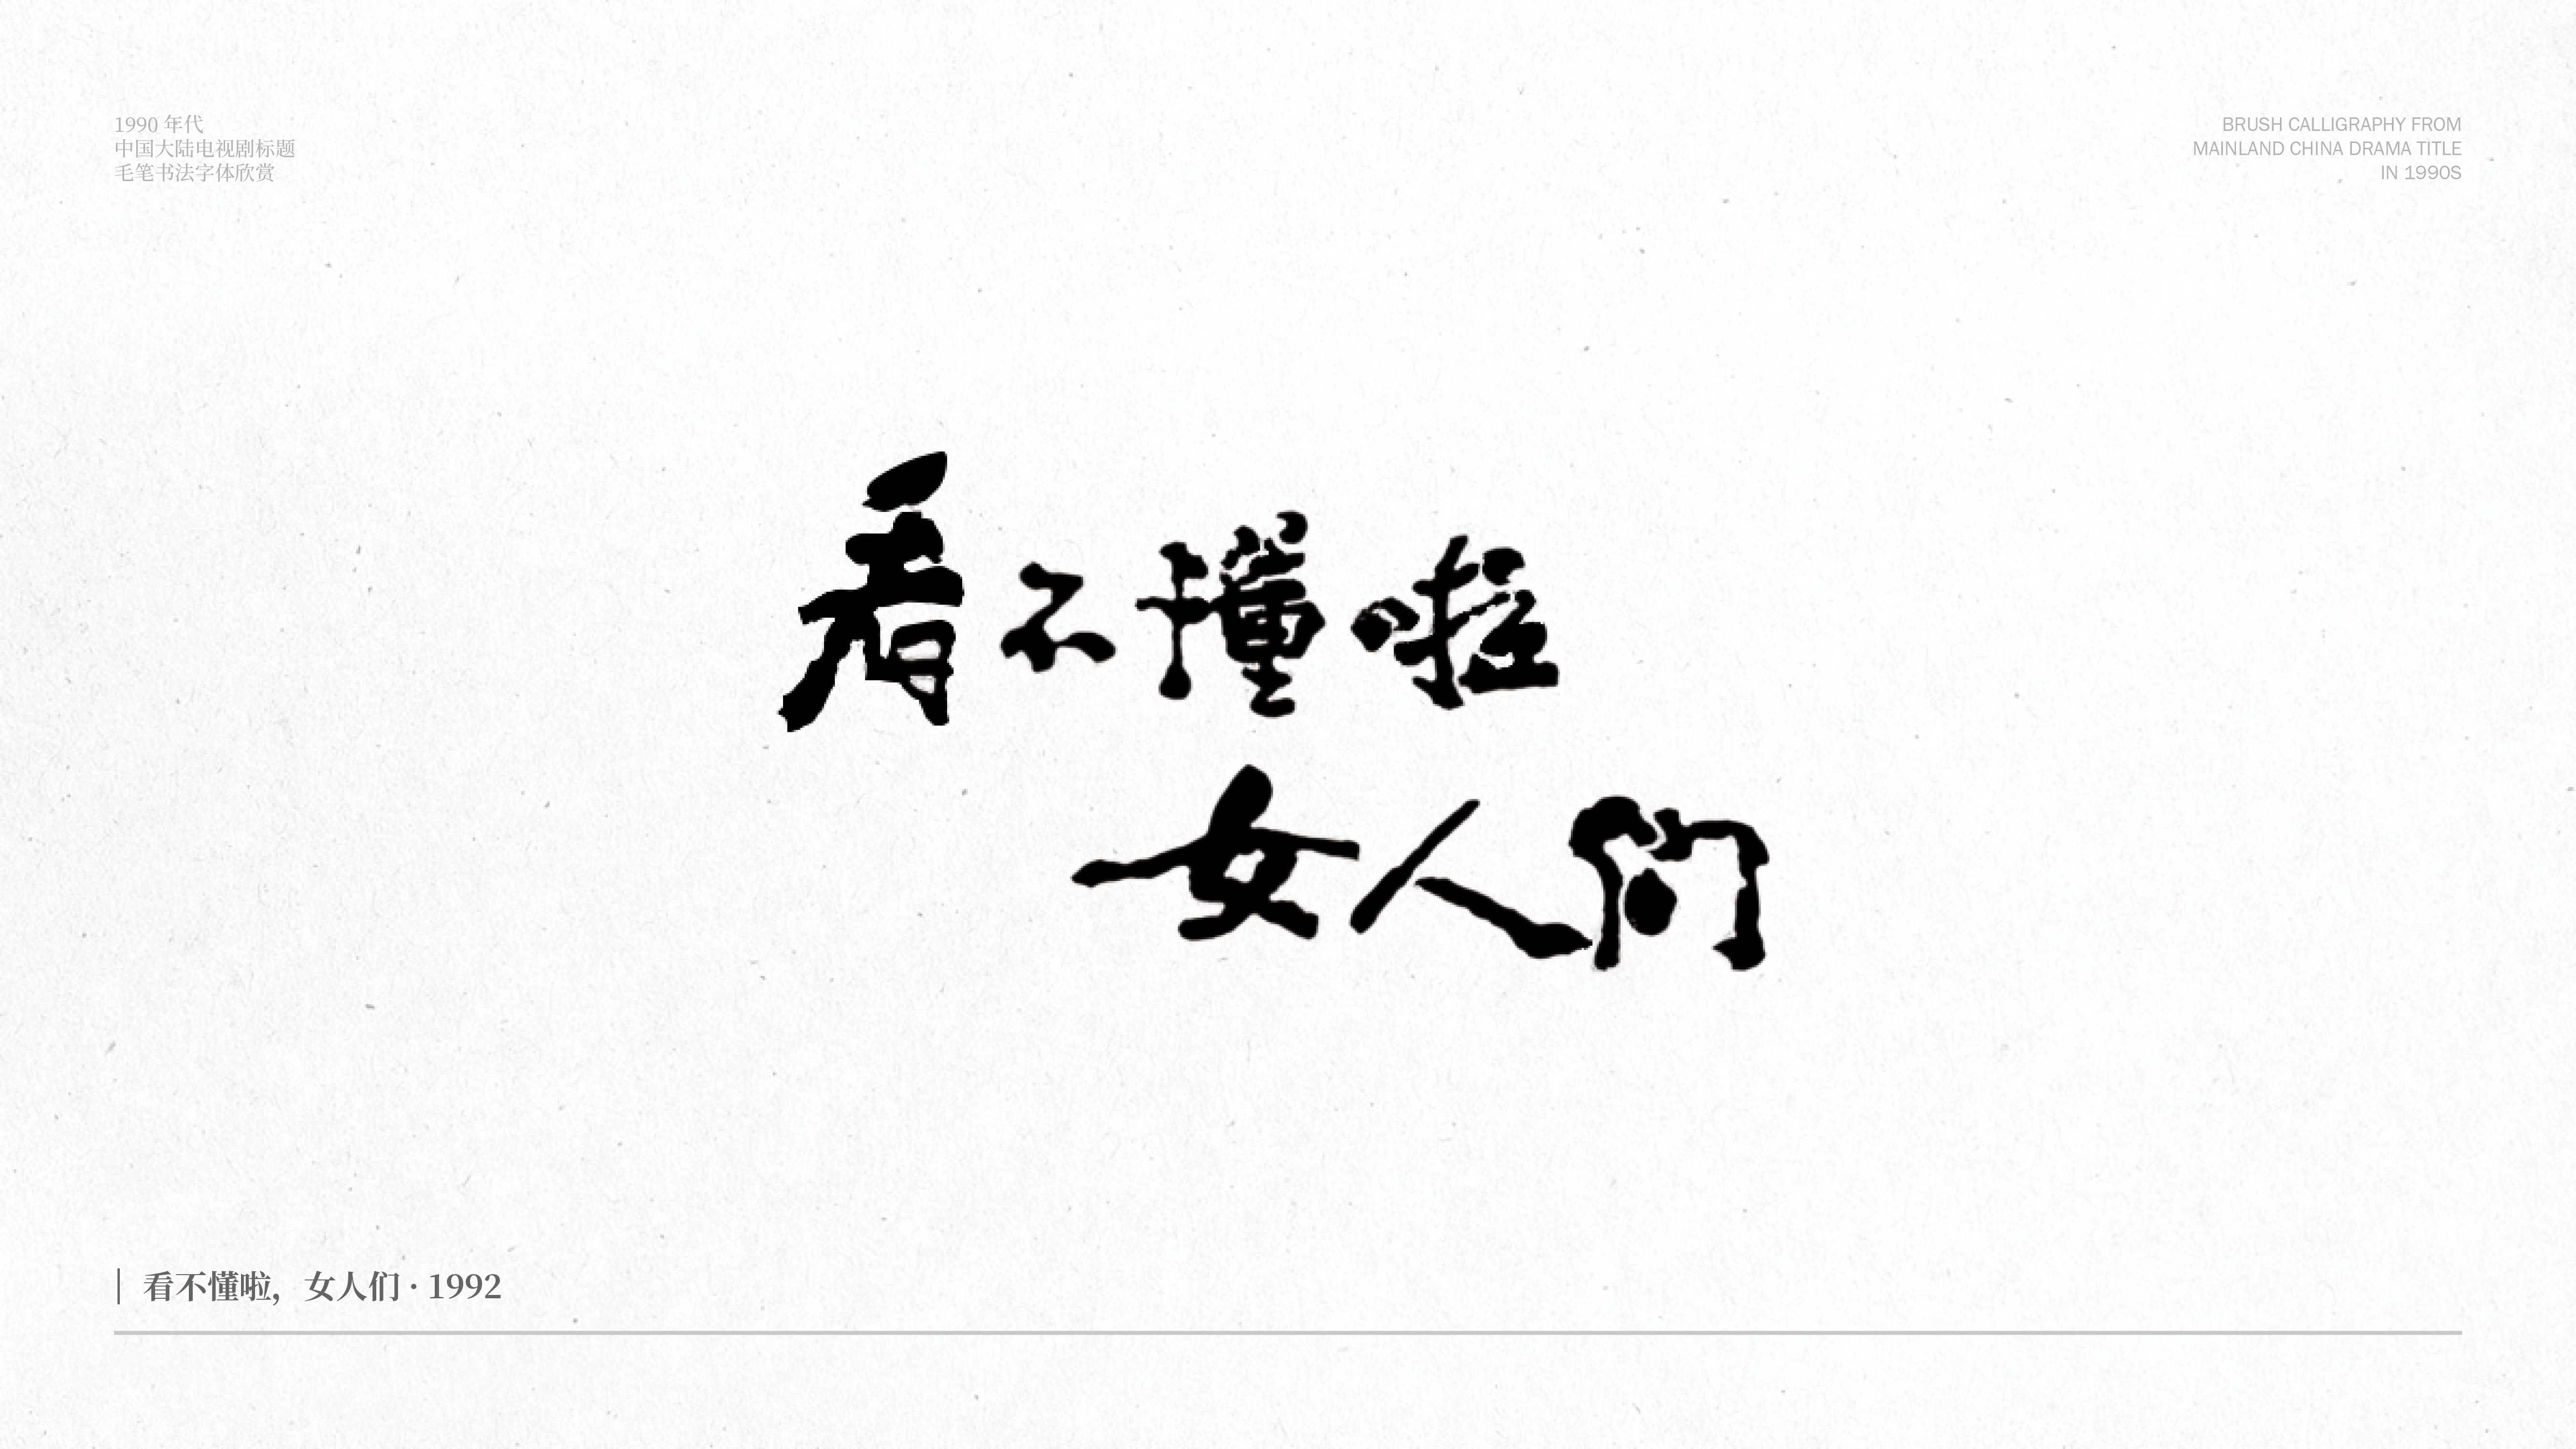 1990 年代
中国大陆电视剧标题
毛笔书法字体欣赏
BRUSH CALLIGRAPHY FROM
MAINLAND CHINA DRAMA TITLE
IN 1990S
看不懂啦
女人们
看不懂啦，女人们 · 1992